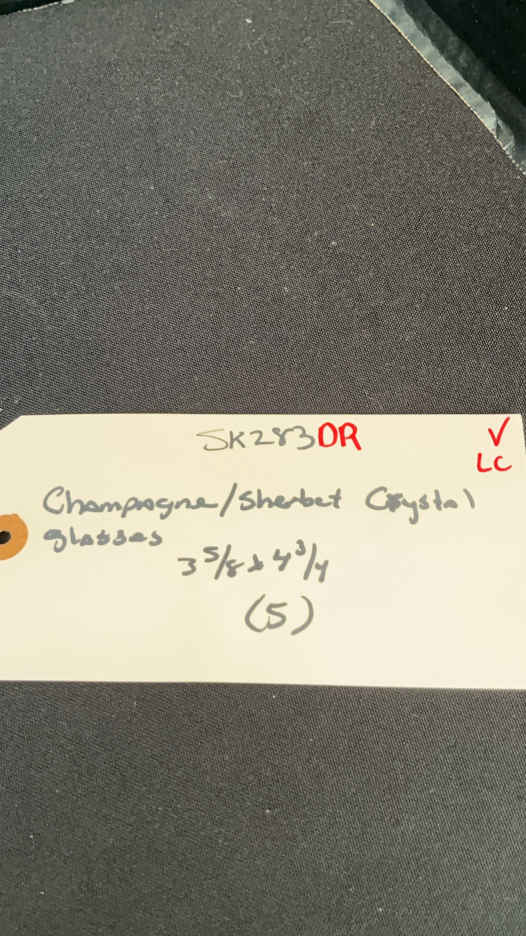 SK283DR
V
LC
Champagne/Sherbet Crystal
glasses
3 5/8 x 4 3/4
(5)